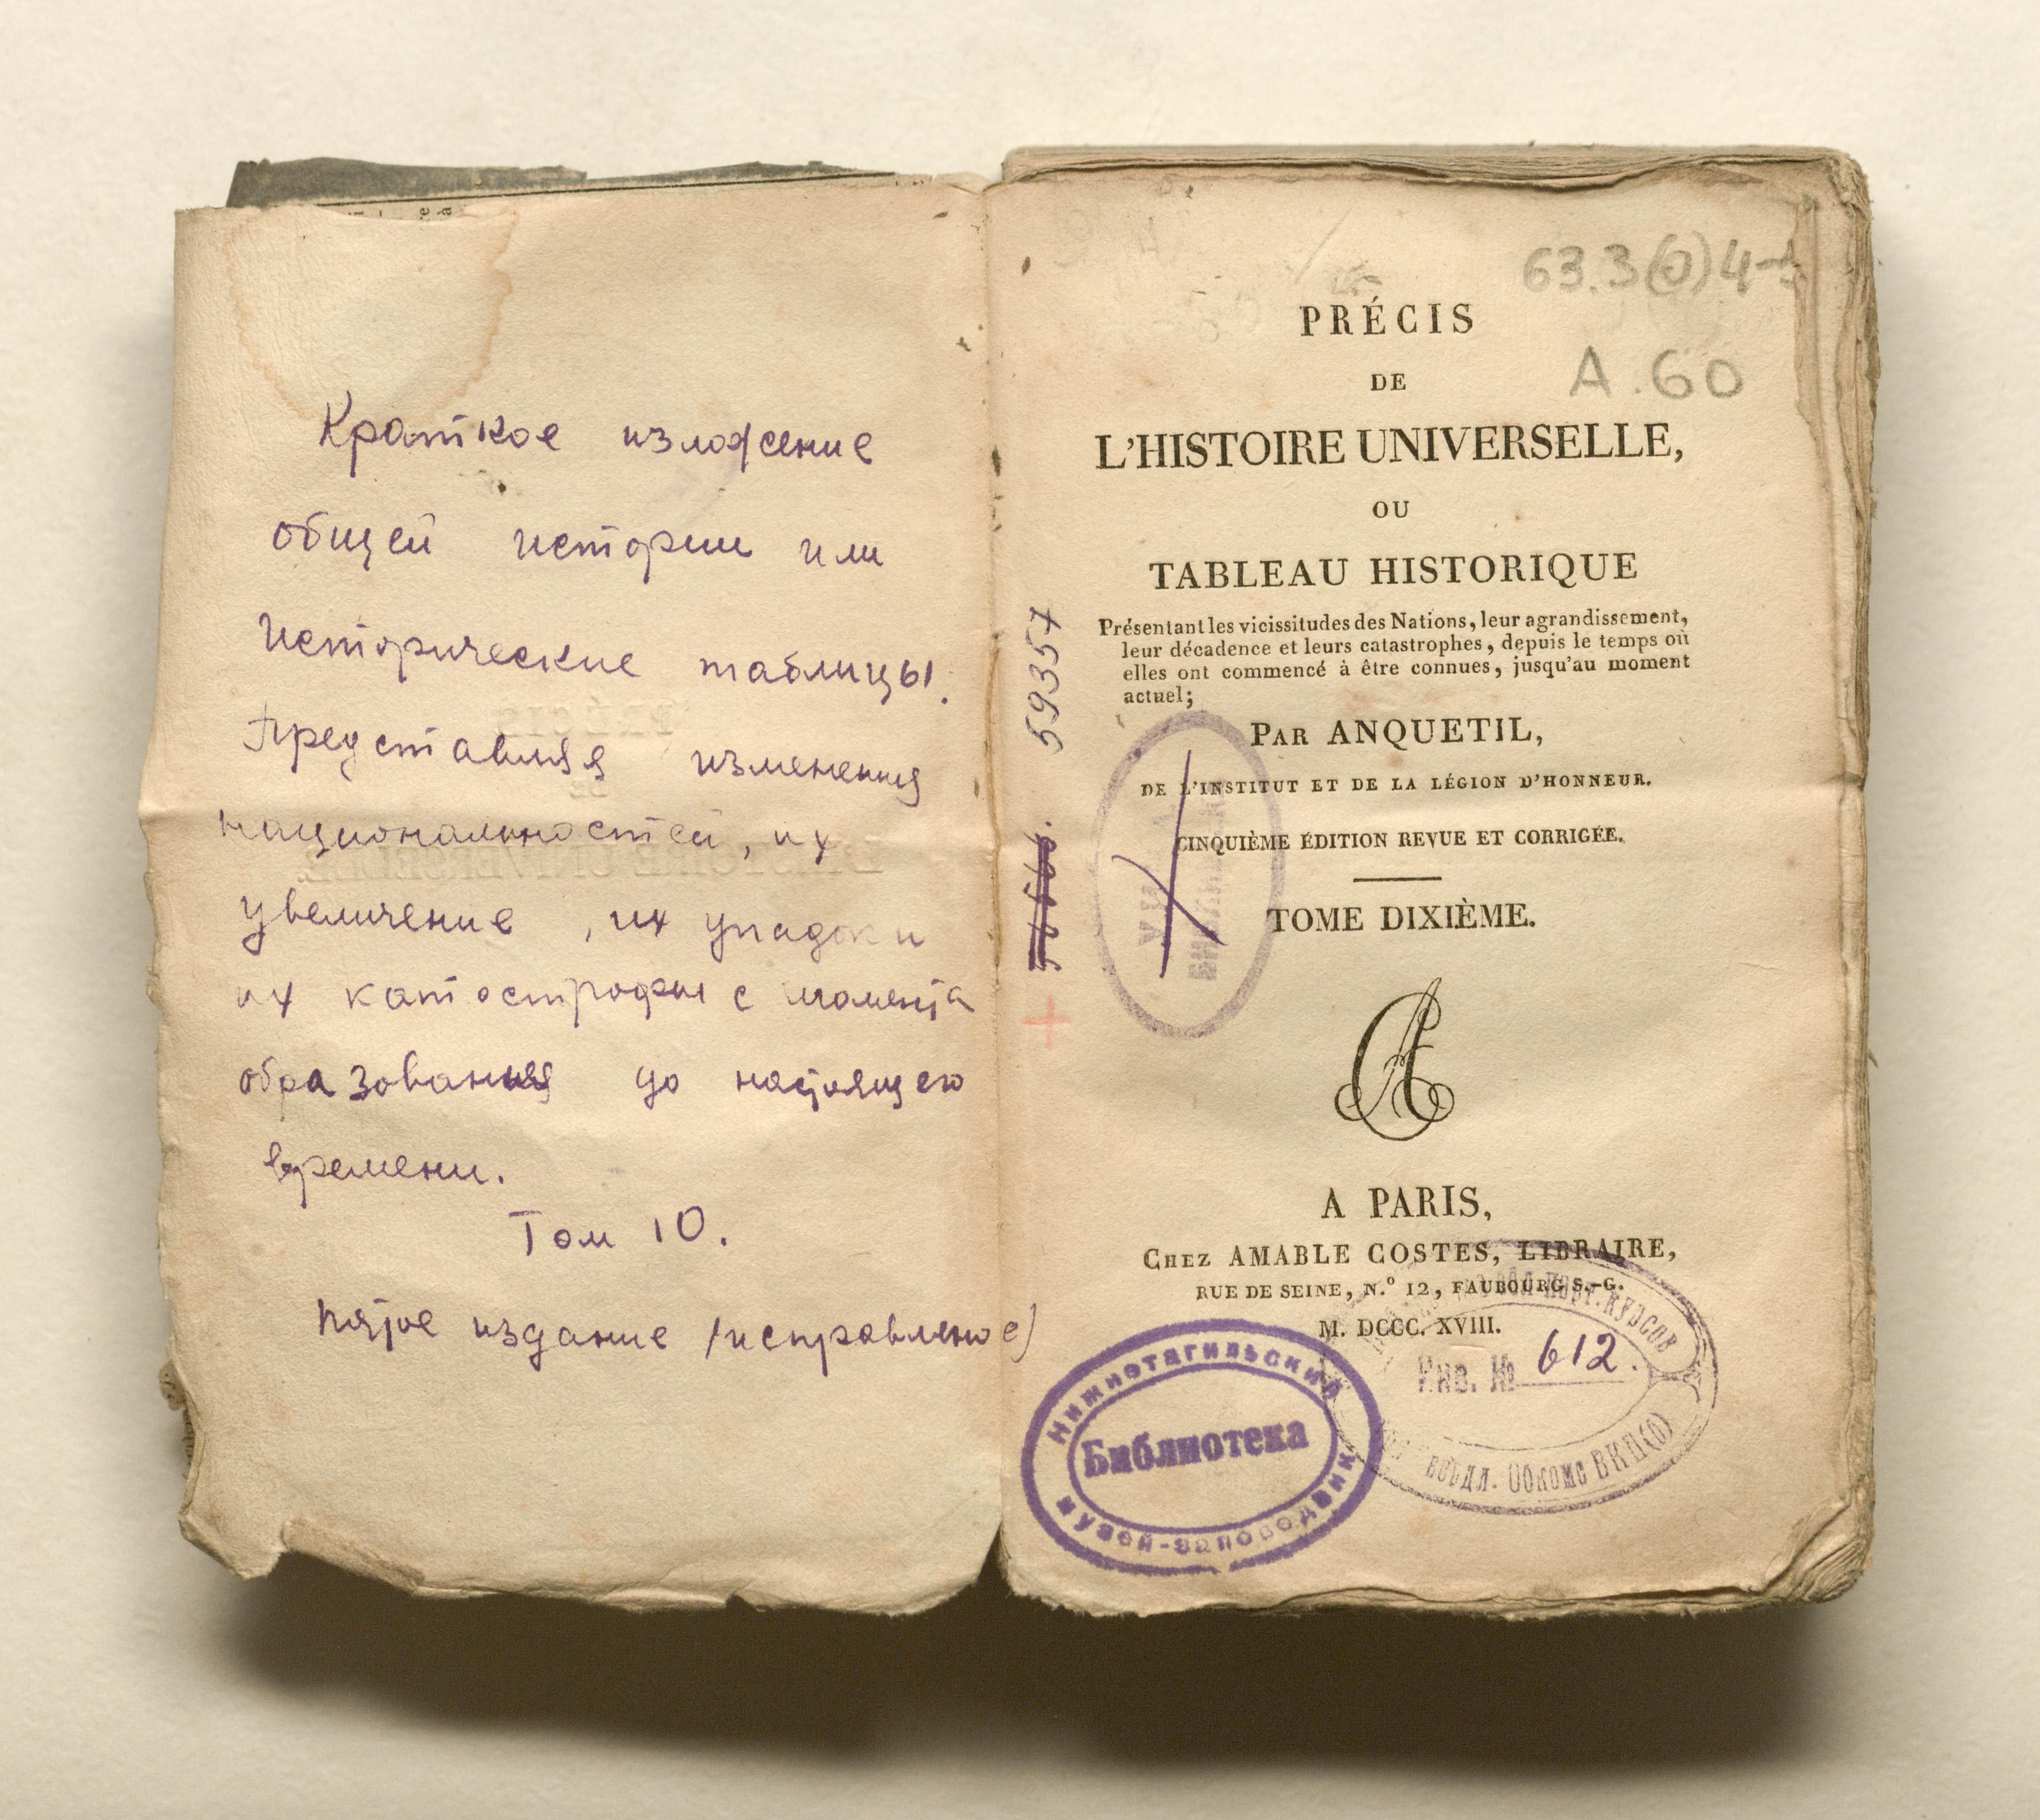 Краткое изложение
общей истории или
Исторические таблицы.
Представляя изменения
национальностей, их
увеличение, их упадок и
их катострофы с момента
образования до настоящего
времени.
Том 10.
Пятое издание (исправленое)
63.3(0)4-5
А.60
PRÉCIS
DE
L'HISTOIRE UNIVERSELLE,
OU
TABLEAU HISTORIQUE
Présentant les vicissitudes des Nations, leur agrandissement,
leur décadence et leurs catastrophes, depuis le temps où
elles ont commencé à être connues, jusqu'au moment
actuel;
PAR ANQUETIL,
DE L'INSTITUT ET DE LA LÉGION D'HONNEUR.
CINQUIÈME ÉDITION REVUE ET CORRIGÉE.
TOME DIXIÈME.
59357
A PARIS,
CHEZ AMABLE COSTES, LIBRAIRE,
RUE DE SEINE, N.º 12, FAUBOURG S.-G.
M. DCCC. XVIII.
Нижнетагильский
Библиотека
музей-заповедник
КУРСОВ
Инв. № 612.
Обкоме ВКП(б)